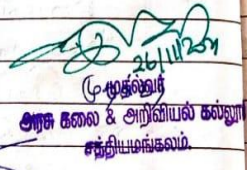 26/11/
முதல்வர்
அரசு கலை & அறிவியல் கல்லூ
சத்தியமங்கலம்.